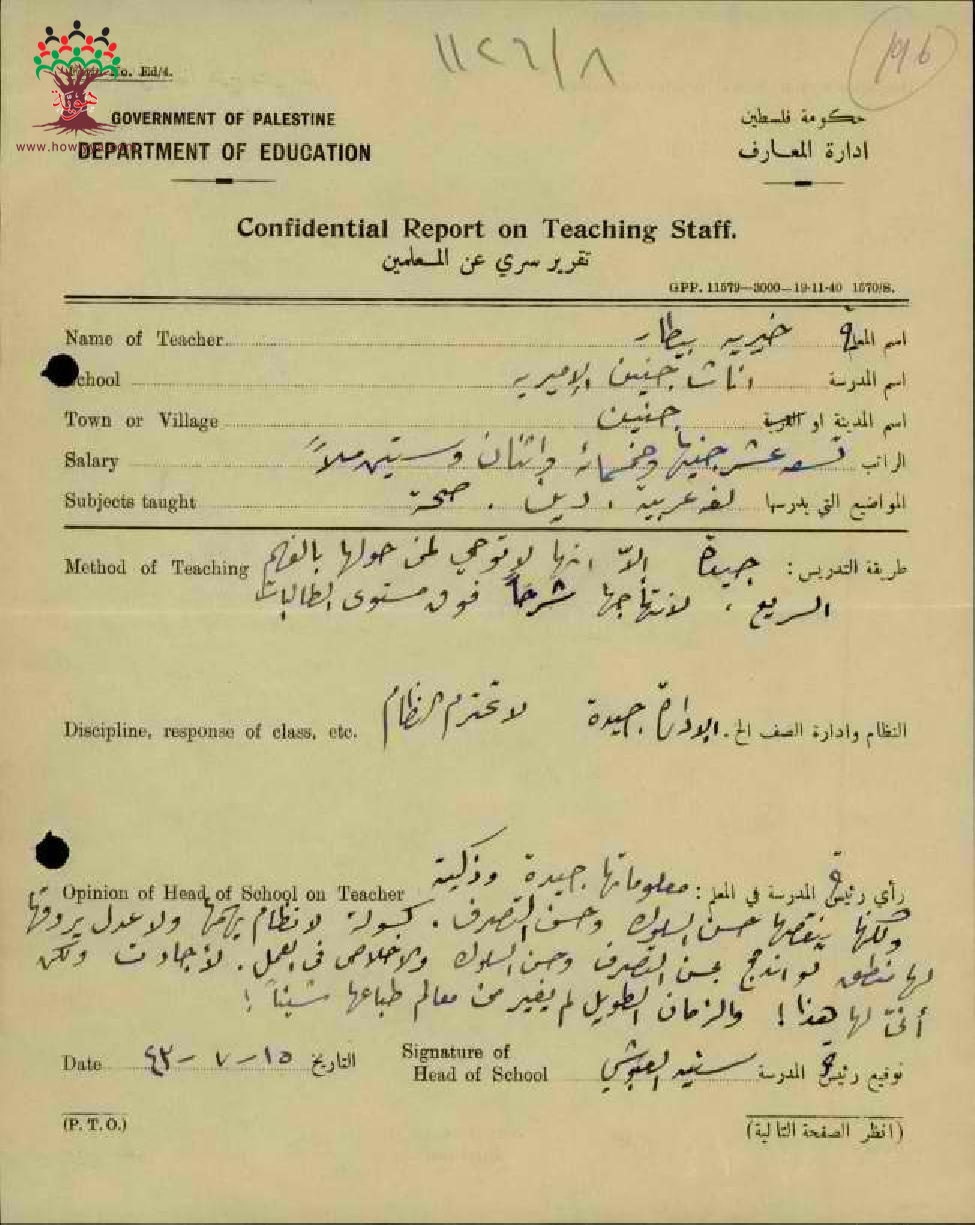 ١١٢٦/٨
196
No. Ed/4.
هوية
www.howiyya.com
GOVERNMENT OF PALESTINE
حكومة فلسطين
DEPARTMENT OF EDUCATION
ادارة المعارف
Confidential Report on Teaching Staff.
تقرير سري عن المعلمين
GPP. 11579—3000—19-11-40 1570/S.
Name of Teacher خيريه بيطار اسم المعلمة
School اناث جنين الاميريه اسم المدرسة
Town or Village جنين اسم المدينة او القرية
Salary تسعه عشر جنيها وخمسمائة واثنان وستين ملاً الراتب
Subjects taught لغه عربية . دين . صحة المواضيع التي يدرسها
Method of Teaching طريقة التدريس: جيدة إلاّ انها لا توحي لمن حولها بالفهم
السريع . لانتهاجها شرحاً فوق مستوى الطالبات
Discipline, response of class, etc. النظام وادارة الصف الخ. الإدارة جيدة لا تحترم النظام
Opinion of Head of School on Teacher رأي رئيسة المدرسة في المعلم: معلوماتها جيدة وذكية
ولكنها ينقصها حسن السلوك وحسن التصرف . لا نظام يهمها ولا عدل يروقها
لها منطق لو اندمج بحسن التصرف وحسن السلوك والاخلاص في العمل . لأجادت ولكن
أنّى لها هذا ! والزمان الطويل لم يغير من معالم طباعها شيئاً !
Date ١٥ - ٧ - ٤٣ التاريخ
Signature of Head of School توقيع رئيسة المدرسة
(P. T. O.)
(انظر الصفحة التالية)